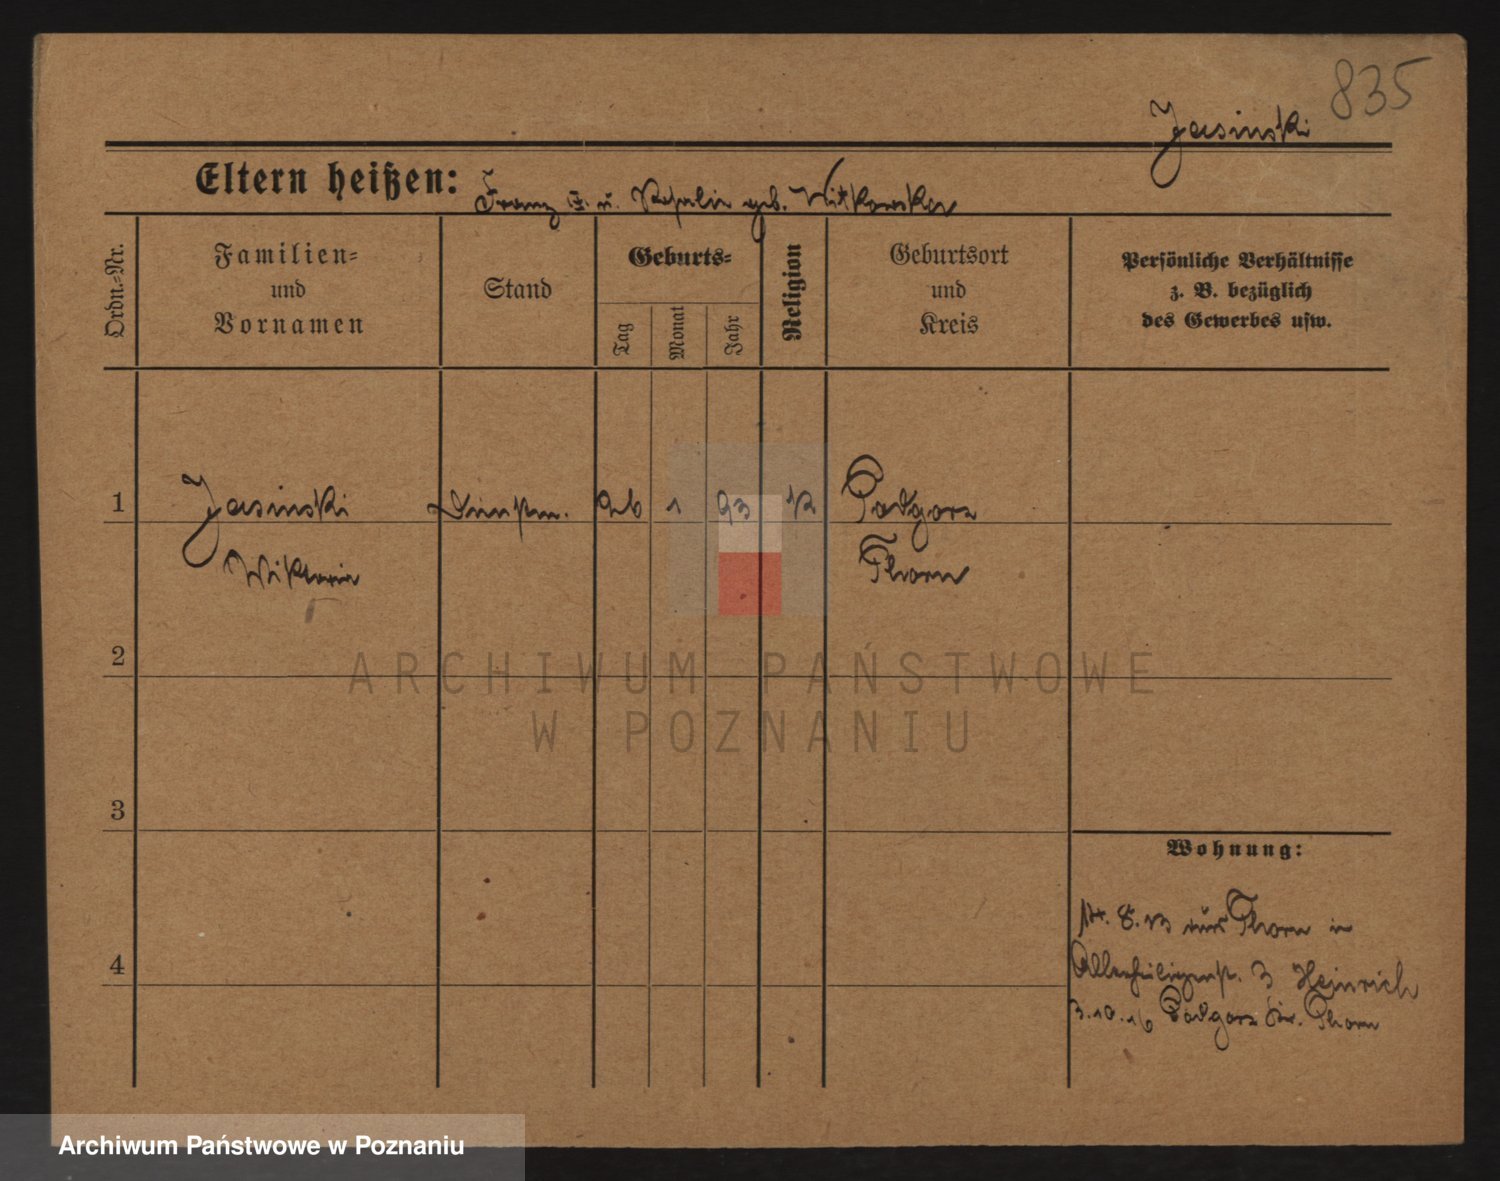 835
Jasinski
Eltern heißen: Franz u. geb. Witkowska
Ordn.-Nr.
Familien-
und
Vornamen
Stand
Geburts-
Tag
Monat
Jahr
Religion
Geburtsort
und
Kreis
Persönliche Verhältnisse
z. B. bezüglich
des Gewerbes usw.
1 Jasinski 26 1 93 k Podgorz
Wiktoria Thorn
2
3
4
Wohnung:
14. 8. 13 aus Thorn in
Allerheiligenst. 3 Heinrich
3.10.16 Podgorz Kr. Thorn
ARCHIWUM PAŃSTWOWE
W POZNANIU
Archiwum Państwowe w Poznaniu